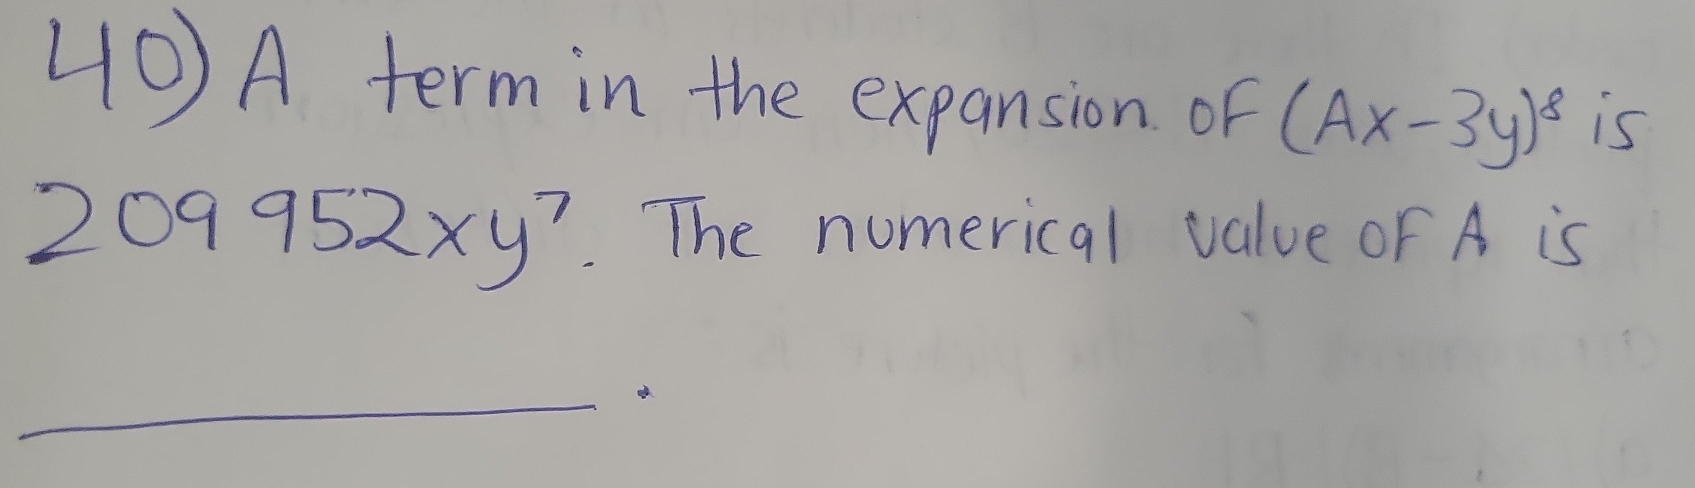 40) A term in the expansion of (Ax-3y)⁸ is
209 952xy⁷. The numerical value of A is
__________.